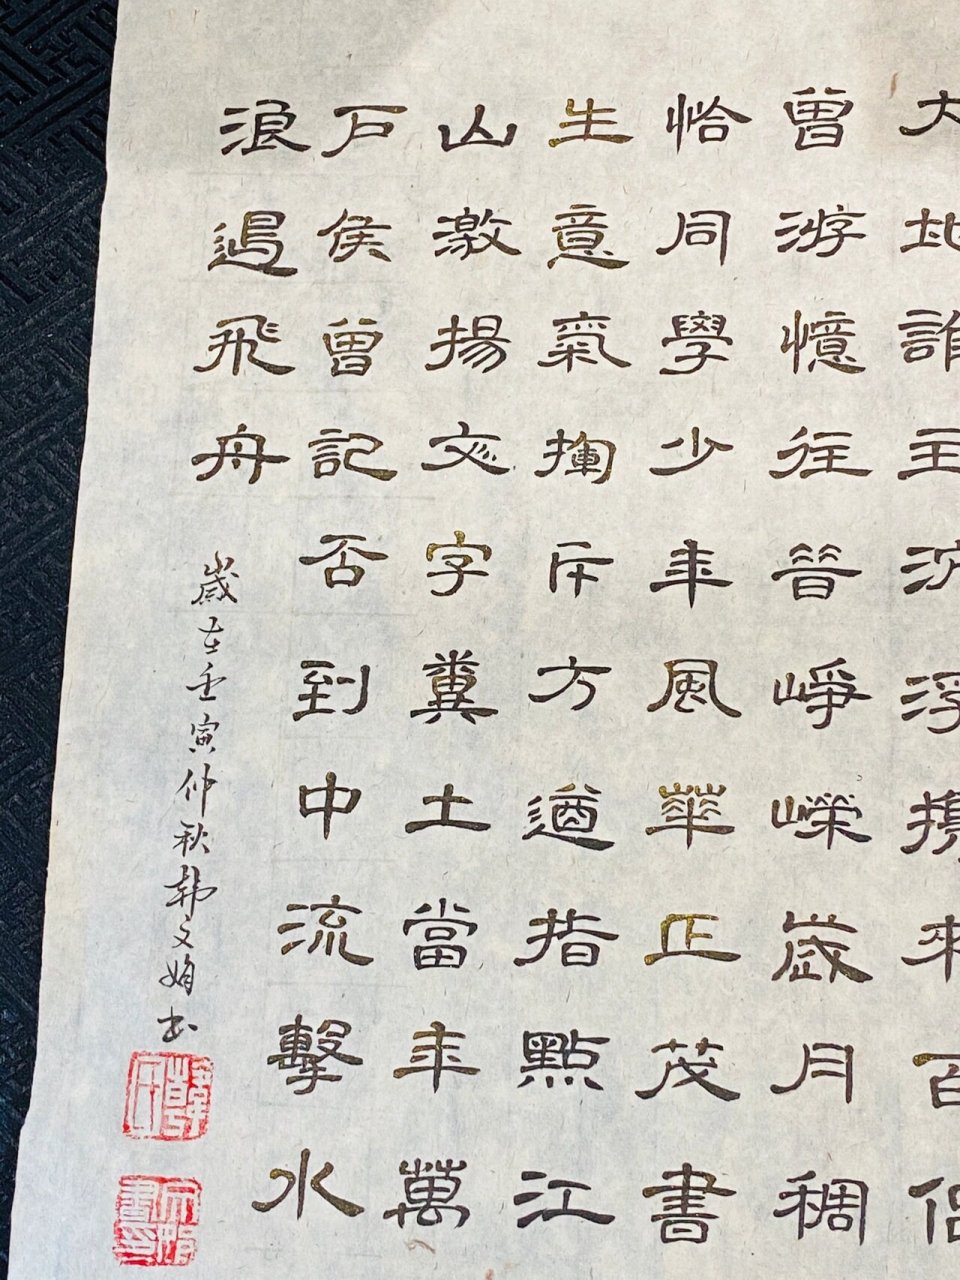 大地誰主沉浮携來百侶
曾游憶往昔崢嶸歲月稠
恰同學少年風華正茂書
生意氣揮斥方遒指點江
山激揚文字糞土當年萬
戶侯曾記否到中流擊水
浪遏飛舟
歲在壬寅仲秋韓文娟书